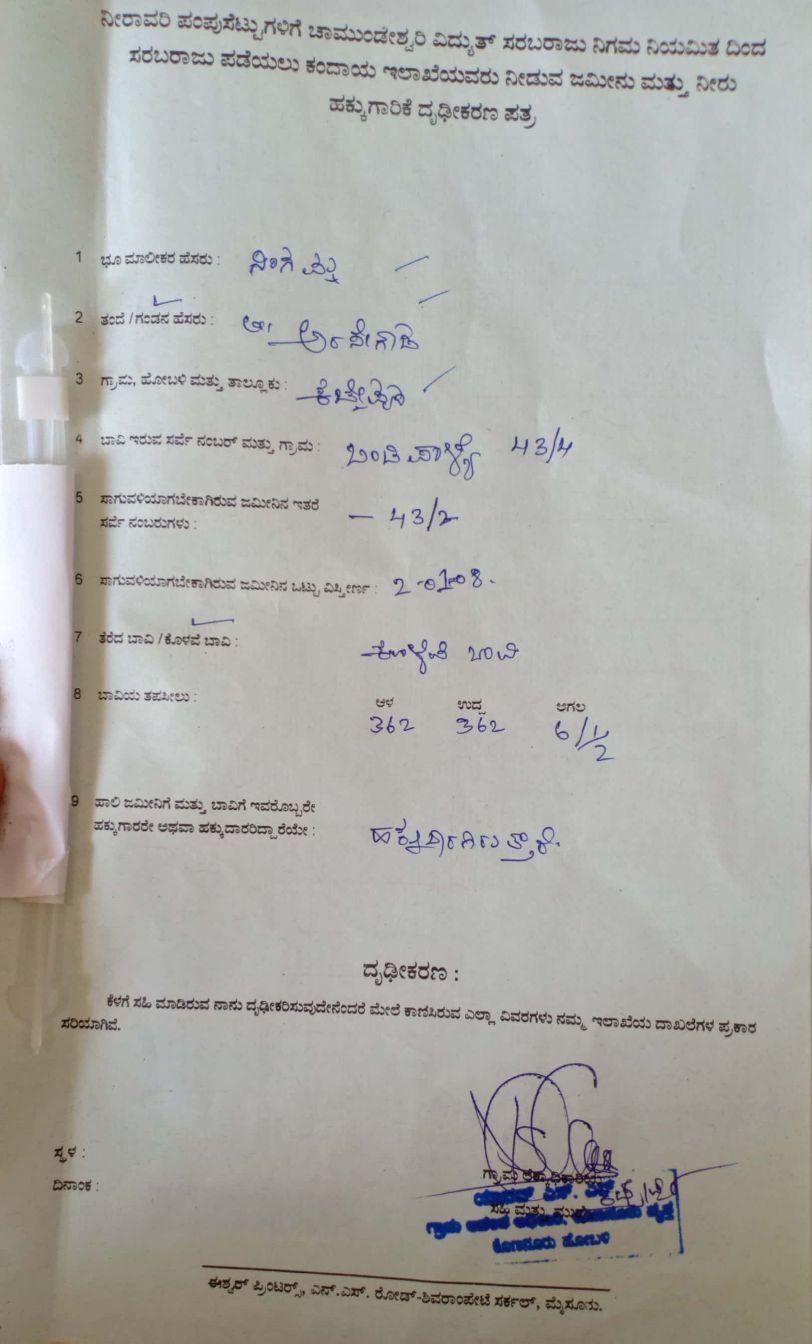 ನೀರಾವರಿ ಪಂಪುಸೆಟ್ಟುಗಳಿಗೆ ಚಾಮುಂಡೇಶ್ವರಿ ವಿದ್ಯುತ್ ಸರಬರಾಜು ನಿಗಮ ನಿಯಮಿತ ದಿಂದ
ಸರಬರಾಜು ಪಡೆಯಲು ಕಂದಾಯ ಇಲಾಖೆಯವರು ನೀಡುವ ಜಮೀನು ಮತ್ತು ನೀರು
ಹಕ್ಕುಗಾರಿಕೆ ದೃಢೀಕರಣ ಪತ್ರ
1 ಭೂ ಮಾಲೀಕರ ಹೆಸರು :
2 ತಂದೆ / ಗಂಡನ ಹೆಸರು :
3 ಗ್ರಾಮ, ಹೋಬಳಿ ಮತ್ತು ತಾಲ್ಲೂಕು :
4 ಬಾವಿ ಇರುವ ಸರ್ವೆ ನಂಬರ್ ಮತ್ತು ಗ್ರಾಮ : ಬಂಡಿಪಾಳ್ಯ 43/4
5 ಸಾಗುವಳಿಯಾಗಬೇಕಾಗಿರುವ ಜಮೀನಿನ ಇತರೆ
ಸರ್ವೆ ನಂಬರುಗಳು : - 43/2
6 ಸಾಗುವಳಿಯಾಗಬೇಕಾಗಿರುವ ಜಮೀನಿನ ಒಟ್ಟು ವಿಸ್ತೀರ್ಣ :
7 ತೆರೆದ ಬಾವಿ / ಕೊಳವೆ ಬಾವಿ : ಕೊಳವೆ ಬಾವಿ
8 ಬಾವಿಯ ತಪಸೀಲು : ಆಳ ಉದ್ದ ಅಗಲ
362 362 6 1/2
9 ಹಾಲಿ ಜಮೀನಿಗೆ ಮತ್ತು ಬಾವಿಗೆ ಇವರೊಬ್ಬರೇ
ಹಕ್ಕುಗಾರರೇ ಅಥವಾ ಹಕ್ಕುದಾರರಿದ್ದಾರೆಯೇ : ಹಕ್ಕುದಾರರಿರುತ್ತಾರೆ.
ದೃಢೀಕರಣ :
ಕೆಳಗೆ ಸಹಿ ಮಾಡಿರುವ ನಾನು ದೃಢೀಕರಿಸುವುದೇನೆಂದರೆ ಮೇಲೆ ಕಾಣಿಸಿರುವ ಎಲ್ಲಾ ವಿವರಗಳು ನಮ್ಮ ಇಲಾಖೆಯ ದಾಖಲೆಗಳ ಪ್ರಕಾರ
ಸರಿಯಾಗಿವೆ.
ಸ್ಥಳ :
ದಿನಾಂಕ :
ಗ್ರಾಮ ಲೆಕ್ಕಾಧಿಕಾರಿಗಳ
ಸಹಿ ಮತ್ತು ಮುದ್ರೆ
ಈಶ್ವರ್ ಪ್ರಿಂಟರ್ಸ್, ಎನ್.ಎಸ್. ರೋಡ್-ಶಿವರಾಂಪೇಟೆ ಸರ್ಕಲ್, ಮೈಸೂರು.